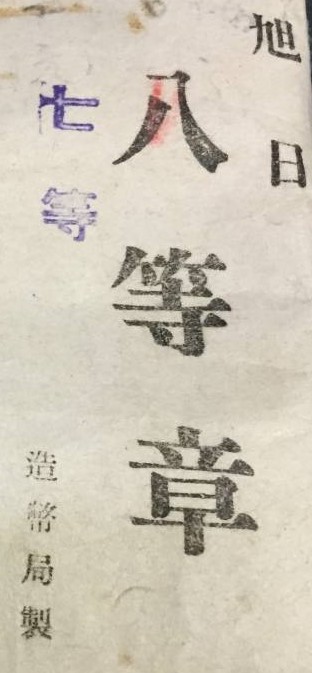 旭日
八等章
七等
造幣局製